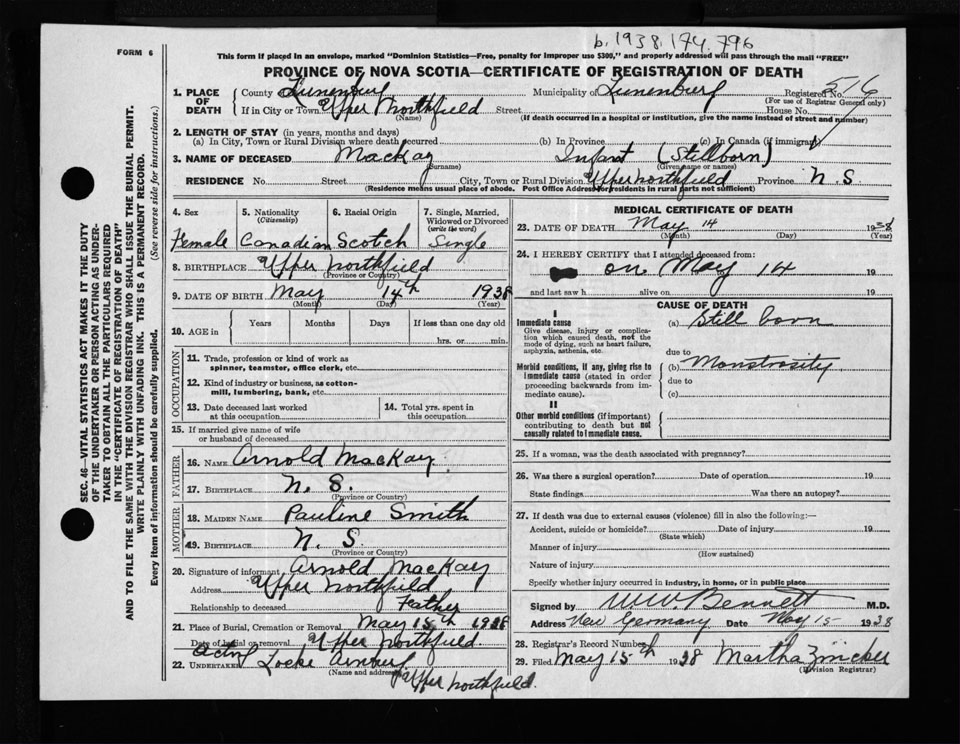 b. 1938.174.796
FORM 6
This form if placed in an envelope, marked "Dominion Statistics—Free, penalty for improper use $300," and properly addressed will pass through the mail "FREE"
PROVINCE OF NOVA SCOTIA—CERTIFICATE OF REGISTRATION OF DEATH
1. PLACE OF DEATH
County Lunenburg Municipality of Lunenburg Registered No. 516
(For use of Registrar General only)
If in City or Town Upper Northfield Street House No.
(Name) (If death occurred in a hospital or institution, give the name instead of street and number)
2. LENGTH OF STAY (in years, months and days)
(a) In City, Town or Rural Division where death occurred (b) In Province (c) In Canada (if immigrant)
3. NAME OF DECEASED MacKay Infant (Stillborn)
(Surname) (Given name or names)
RESIDENCE No. Street City, Town or Rural Division Upper Northfield Province N.S
(Residence means usual place of abode. Post Office Address for residents in rural parts not sufficient)
SEC. 46—VITAL STATISTICS ACT MAKES IT THE DUTY
OF THE UNDERTAKER OR PERSON ACTING AS UNDER-
TAKER TO OBTAIN ALL THE PARTICULARS REQUIRED
IN THE "CERTIFICATE OF REGISTRATION OF DEATH"
AND TO FILE THE SAME WITH THE DIVISION REGISTRAR WHO SHALL ISSUE THE BURIAL PERMIT.
WRITE PLAINLY WITH UNFADING INK. THIS IS A PERMANENT RECORD.
Every item of information should be carefully supplied. (See reverse side for instructions.)
4. Sex 5. Nationality 6. Racial Origin 7. Single, Married,
(Citizenship) Widowed or Divorced
(write the word)
Female Canadian Scotch Single
8. BIRTHPLACE Upper Northfield
(Province or Country)
9. DATE OF BIRTH May 14th 1938
(Month) (Day) (Year)
10. AGE in Years Months Days If less than one day old
hrs. or min.
OCCUPATION
11. Trade, profession or kind of work as
spinner, teamster, office clerk, etc.
12. Kind of industry or business, as cotton-
mill, lumbering, bank, etc.
13. Date deceased last worked
at this occupation
14. Total yrs. spent in
this occupation
15. If married give name of wife
or husband of deceased
FATHER
16. NAME Arnold MacKay
17. BIRTHPLACE N. S.
(Province or Country)
MOTHER
18. MAIDEN NAME Pauline Smith
19. BIRTHPLACE N. S
(Province or Country)
20. Signature of informant Arnold MacKay
Address Upper Northfield
Relationship to deceased Father
21. Place of Burial, Cremation or Removal May 15th 1938
Date of burial or removal Upper Northfield
22. UNDERTAKER Locke
(Name and address)
Upper Northfield.
MEDICAL CERTIFICATE OF DEATH
23. DATE OF DEATH May 14 1938
(Month) (Day) (Year)
24. I HEREBY CERTIFY that I attended deceased from:
on May 14 19
and last saw h alive on 19
CAUSE OF DEATH
I
Immediate cause
Give disease, injury or complica-
tion which caused death, not the
mode of dying, such as heart failure,
asphyxia, asthenia, etc.
(a) Still born
due to
Morbid conditions, if any, giving rise to
immediate cause (stated in order
proceeding backwards from im-
mediate cause).
(b) Monstrosity
due to
(c)
II
Other morbid conditions (if important)
contributing to death but not
causally related to immediate cause.
25. If a woman, was the death associated with pregnancy?
26. Was there a surgical operation? Date of operation 19
State findings Was there an autopsy?
27. If death was due to external causes (violence) fill in also the following:—
Accident, suicide or homicide? Date of injury 19
(State which)
Manner of injury
(How sustained)
Nature of injury
Specify whether injury occurred in industry, in home, or in public place
Signed by W.W. Bennett M.D.
Address New Germany Date May 15 1938
28. Registrar's Record Number
29. Filed May 15th 1938 Martha Zwicker
(Division Registrar)